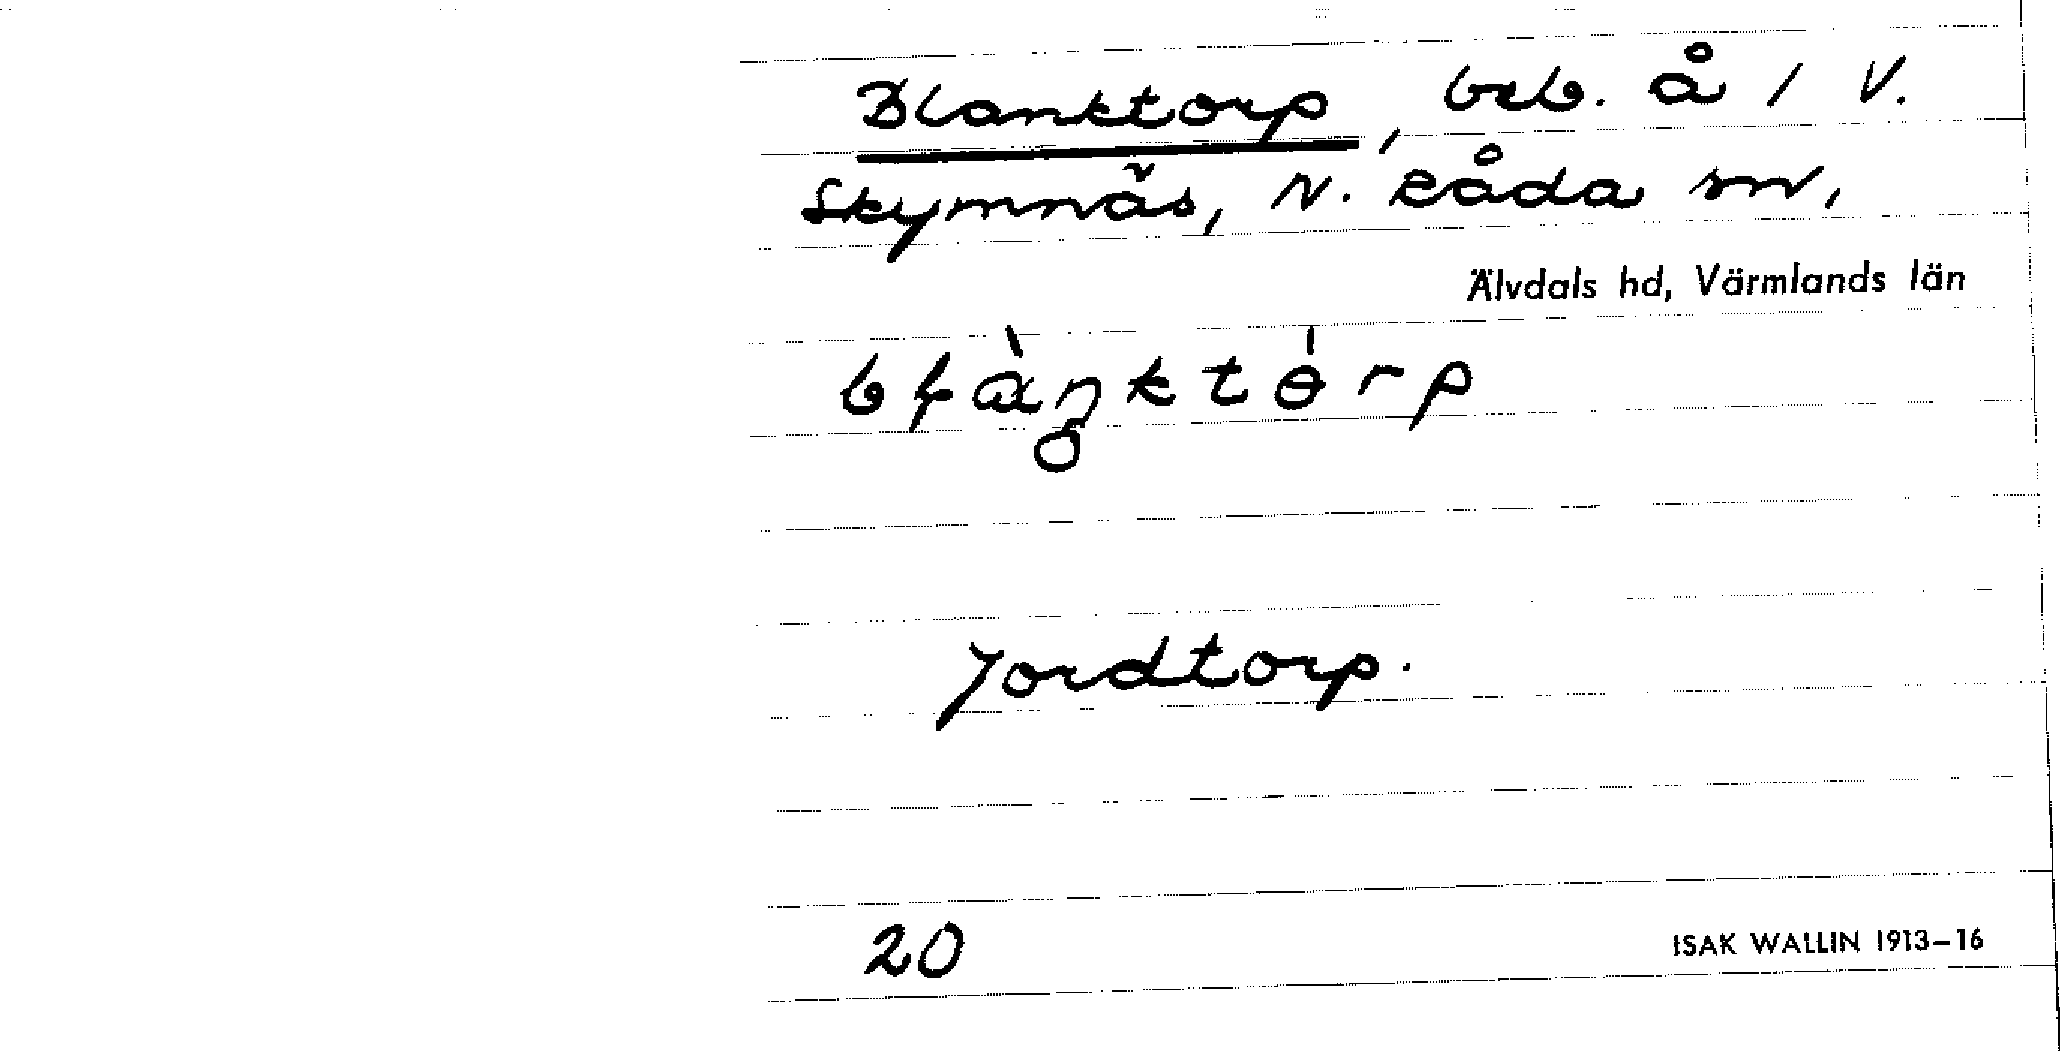 Blanktorp, beb. å 1 V.
Skymnäs, N. Råda sn,
Älvdals hd, Värmlands län
Jordtorp.
20
ISAK WALLIN 1913–16